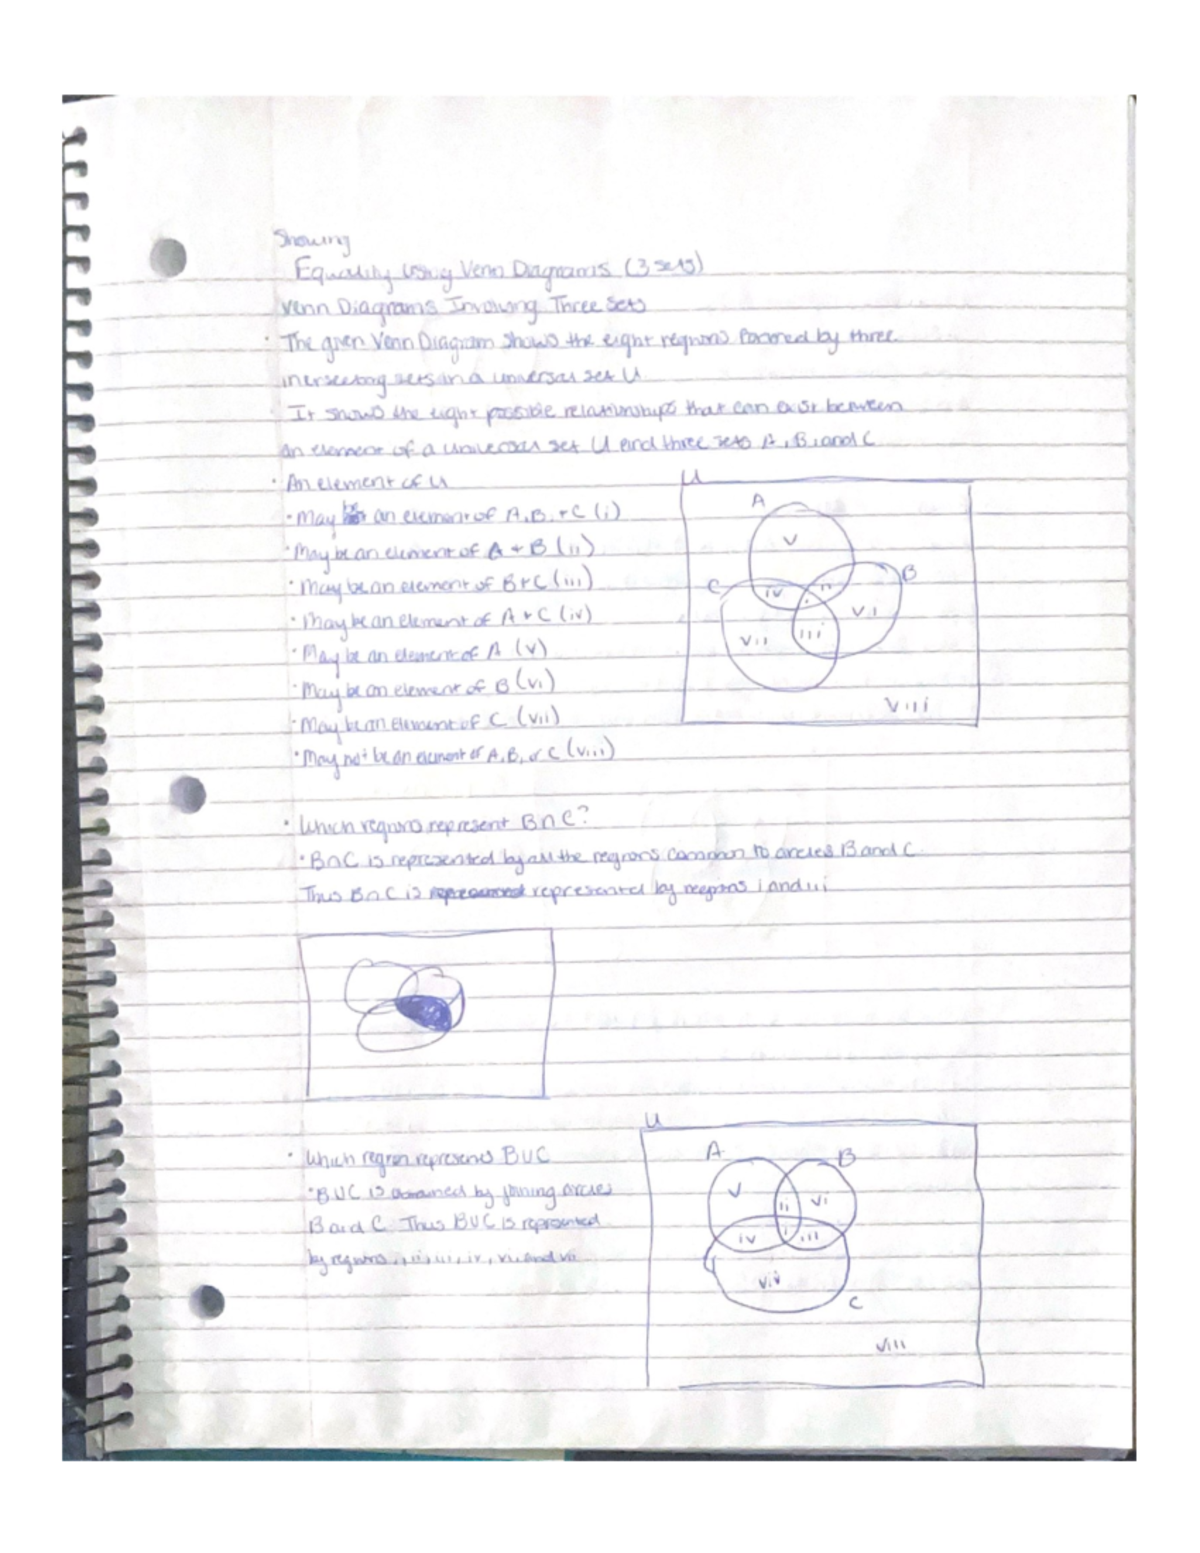 Showing
Equality Using Venn Diagrams (3 sets)
Venn Diagrams Involving Three Sets
· The given Venn Diagram shows the eight regions formed by three
inersecting sets in a universal set U
It shows the eight possible relationships that can exist between
an element of a universal set U and three sets A, B, and C
· An element of U
· May be an element of A, B, + C (i)
· May be an element of A + B (ii)
· May be an element of B + C (iii)
· May be an element of A + C (iv)
· May be an element of A (v)
· May be an element of B (vi)
· May be an element of C (vii)
· May not be an element of A, B, or C (viii)
U
A
v
C
iv
ii
B
i
vi
vii
iii
viii
· Which regions represent B∩C?
· B∩C is represented by all the regions common to circles B and C.
Thus B∩C is represented by regions i and iii
· Which region represents BUC
· BUC is obtained by joining circles
B and C. Thus BUC is represented
by regions i, ii, iii, iv, vi and vii
U
A
B
v
ii
vi
iv
i
iii
vii
C
viii